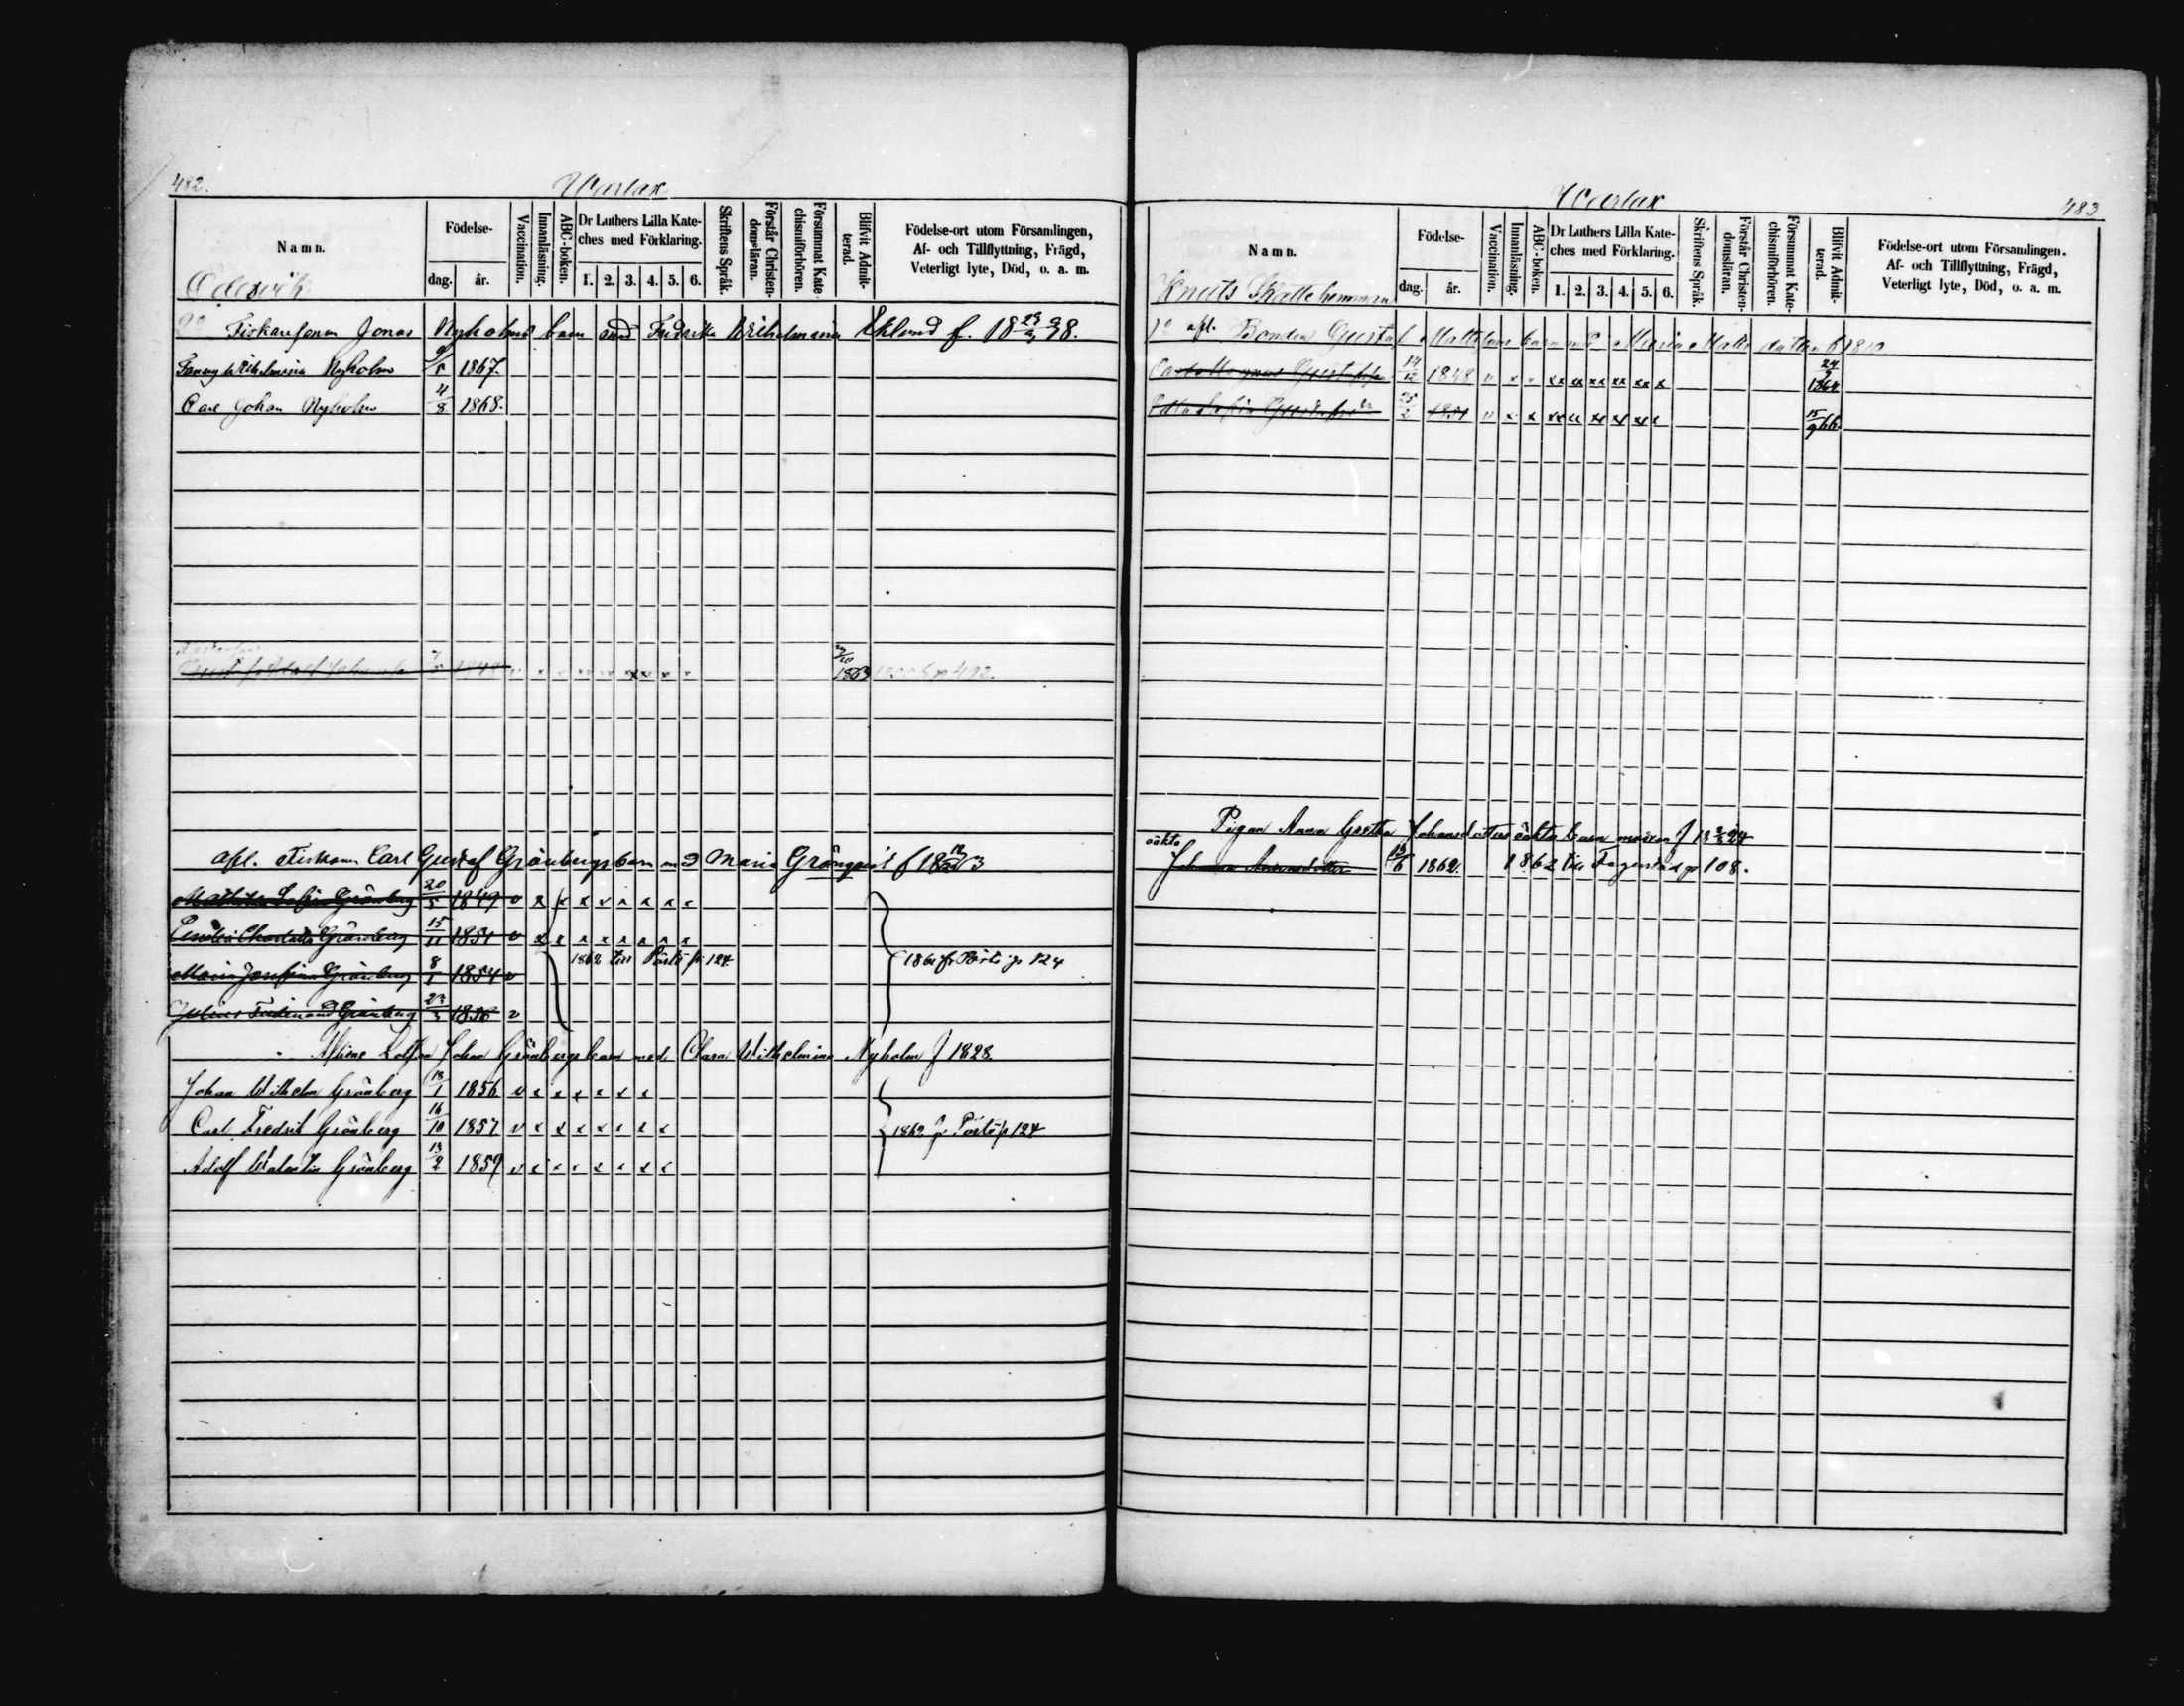 482.
Warlax
Namn.
Födelse-
dag. år.
Vaccination.
Innanläsning.
ABC-boken.
Dr Luthers Lilla Kate-
ches med Förklaring.
1. 2. 3. 4. 5. 6.
Skriftens Språk.
Förstår Christen-
domsläran.
Försummat Kate-
chismiförhören.
Blifvit Admit-
terad.
Födelse-ort utom Församlingen,
Af- och Tillflyttning, Frägd,
Veterligt lyte, Död, o. a. m.
Fiskaresonen Jonas Nyholms barn med Fredrika Wilhelmina Eklund f. 18 23/9 38.
Fanny Wilhelmina Nyholm 9/5 1867.
Carl Johan Nyholm 4/8 1868.
1863 p 492.
afl. Fiskaren Carl Gustaf Grönbergs barn med Maria Grönqvist f 18 3
Mathilda Sofia Grönberg 20/5 1849 v x x x v x x x x
Emilia Charlotta Grönberg 15/11 1851 v x x x x x x x x
1862 till Pörtö p 124.
1861 fr Pörtö p 124
Maria Josefina Grönberg 8/1 1854 v
Julius Ferdinand Grönberg 23/3 1856 v
Johan Grönbergs barn med Clara Wilhelmina Nyholm f 1828.
Johan Wilhelm Grönberg 13/1 1856 v x x x x x x
Carl Fredrik Grönberg 16/10 1857 v x x x x x x x
1862 fr Pörtö p 124
Adolf Walentin Grönberg 13/2 1859 v x x x x x x x
Warlax
483
Namn.
Födelse-
dag. år.
Vaccination.
Innanläsning.
ABC-boken.
Dr Luthers Lilla Kate-
ches med Förklaring.
1. 2. 3. 4. 5. 6.
Skriftens Språk.
Förstår Christen-
domsläran.
Försummat Kate-
chismiförhören.
Blifvit Admit-
terad.
Födelse-ort utom Församlingen.
Af- och Tillflyttning, Frägd,
Veterligt lyte, Död, o. a. m.
Knuts Skattehemman
afl. Bonden Gustaf Mattssons barn med Maria Matts dotter f 1810
Carl Magnus Gustafsson 14/12 1848 v x x xx xx xx xx xx x 24/9 1864
Edla Sofia Gustafsdr 25/2 1851 v x x xx xx xx xx xx x 15/9 66.
Pigan Anna Gretha Johansdotters oäkta barn modren f 18 24
oäkta
Johanna 13/6 1862. 1862 till p 108.